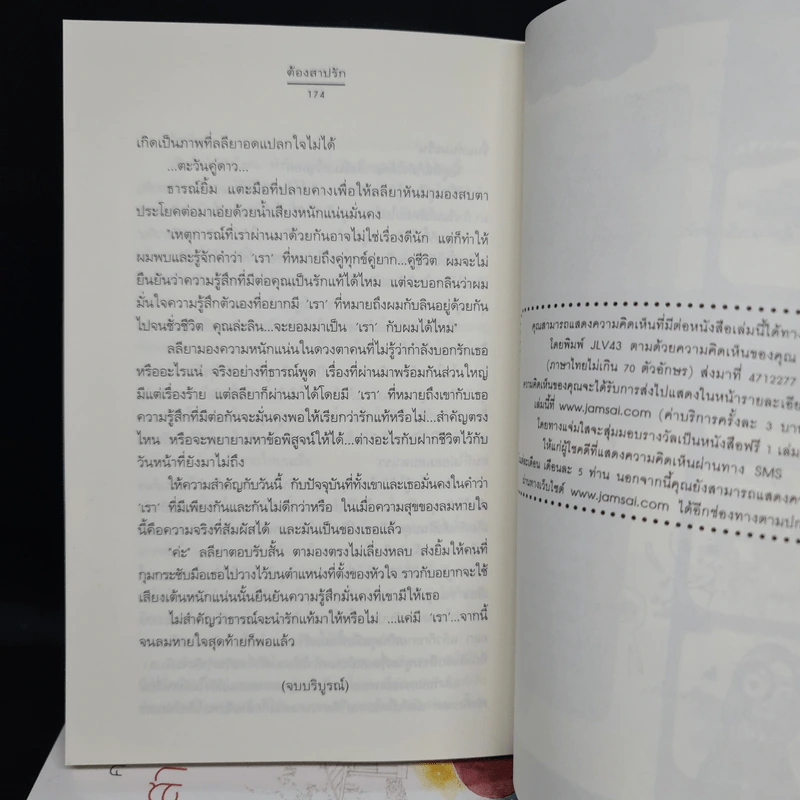 ต้องสาปรัก
174
เกิดเป็นภาพที่ลลียาอดแปลกใจไม่ได้
...ตะวันคู่ดาว...
ธารณ์ยิ้ม แตะมือที่ปลายคางเพื่อให้ลลียาหันมามองสบตา
ประโยคต่อมาเอ่ยด้วยน้ำเสียงหนักแน่นมั่นคง
"เหตุการณ์ที่เราผ่านมาด้วยกันอาจไม่ใช่เรื่องดีนัก แต่ก็ทำให้
ผมพบและรู้จักคำว่า 'เรา' ที่หมายถึงคู่ทุกข์คู่ยาก...คู่ชีวิต ผมจะไม่
ยืนยันว่าความรู้สึกที่มีต่อคุณเป็นรักแท้ได้ไหม แต่จะบอกลินว่าผม
มั่นใจความรู้สึกตัวเองที่อยากมี 'เรา' ที่หมายถึงผมกับลินอยู่ด้วยกัน
ไปจนชั่วชีวิต คุณล่ะลิน...จะยอมมาเป็น 'เรา' กับผมได้ไหม"
ลลียามองความหนักแน่นในดวงตาคนที่ไม่รู้ว่ากำลังบอกรักเธอ
หรืออะไรแน่ จริงอย่างที่ธารณ์พูด เรื่องที่ผ่านมาพร้อมกันส่วนใหญ่
มีแต่เรื่องร้าย แต่ลลียาก็ผ่านมาได้โดยมี 'เรา' ที่หมายถึงเขากับเธอ
ความรู้สึกที่มีต่อกันจะมั่นคงพอให้เรียกว่ารักแท้หรือไม่...สำคัญตรง
ไหน หรือจะพยายามหาข้อพิสูจน์ให้ได้...ต่างอะไรกับฝากชีวิตไว้กับ
วันหน้าที่ยังมาไม่ถึง
ให้ความสำคัญกับวันนี้ กับปัจจุบันที่ทั้งเขาและเธอมั่นคงในคำว่า
'เรา' ที่มีเพียงกันและกันไม่ดีกว่าหรือ ในเมื่อความสุขของลมหายใจ
นี้คือความจริงที่สัมผัสได้ และมันเป็นของเธอแล้ว
"ค่ะ" ลลียาตอบรับสั้น ตามองตรงไม่เลี่ยงหลบ ส่งยิ้มให้คนที่
กุมกระชับมือเธอไปวางไว้บนตำแหน่งที่ตั้งของหัวใจ ราวกับอยากจะใช้
เสียงเต้นหนักแน่นนั้นยืนยันความรู้สึกมั่นคงที่เขามีให้เธอ
ไม่สำคัญว่าธารณ์จะนำรักแท้มาให้หรือไม่ ...แค่มี 'เรา'...จากนี้
จนลมหายใจสุดท้ายก็พอแล้ว
(จบบริบูรณ์)
คุณสามารถแสดงความคิดเห็นที่มีต่อหนังสือเล่มนี้ได้ทาง
โดยพิมพ์ JLV43 ตามด้วยความคิดเห็นของคุณ
(ภาษาไทยไม่เกิน 70 ตัวอักษร) ส่งมาที่ 4712277
ความคิดเห็นของคุณจะได้รับการส่งไปแสดงในหน้ารายละเอีย
เล่มนี้ที่ www.jamsai.com (ค่าบริการครั้งละ 3 บาท
โดยทางแจ่มใสจะสุ่มมอบรางวัลเป็นหนังสือฟรี 1 เล่ม
ให้แก่ผู้โชคดีที่แสดงความคิดเห็นผ่านทาง SMS
เดือนละ 5 ท่าน นอกจากนี้คุณยังสามารถแสดงคว
ผ่านทางเว็บไซต์ www.jamsai.com ได้อีกช่องทางตามปก